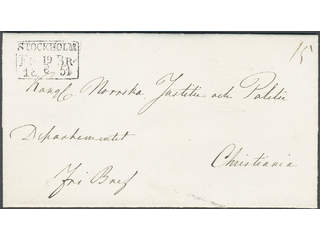 STOCKHOLM
15
19
Kongl Norrska Justitie och Politi
Departementet
Christiania
Fri Bref